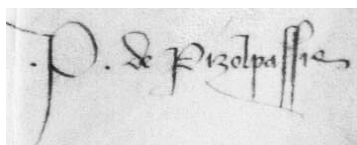 .P. de Pizolpassis